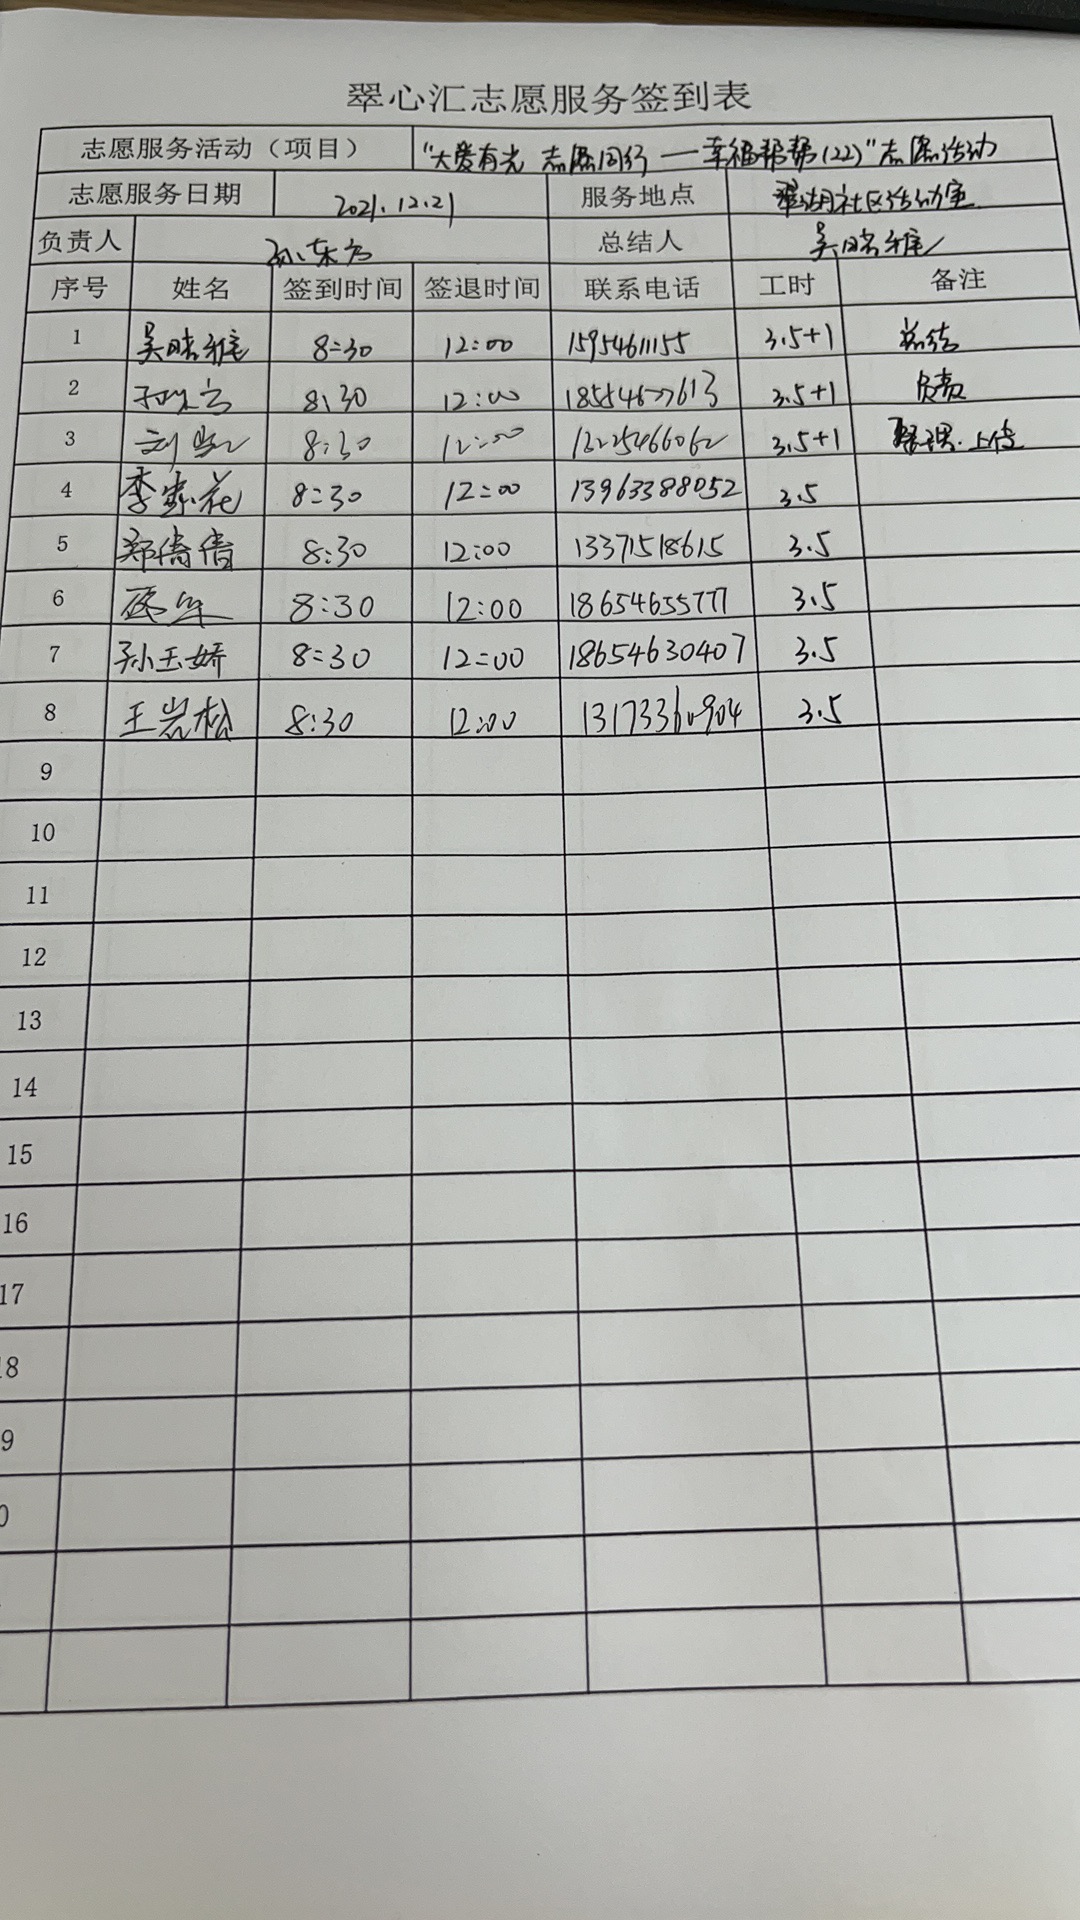 翠心汇志愿服务签到表
志愿服务活动（项目） “大爱有光 志愿同行 — 幸福帮帮(22)”志愿活动
志愿服务日期 2021.12.21 服务地点 翠湖社区活动室
负责人 总结人
序号 姓名 签到时间 签退时间 联系电话 工时 备注
1 8:30 12:00 15954611155 3.5+1 总结
2 8:30 12:00 3.5+1 负责
3 8:30 12:00 3.5+1 整理.上传
4 8:30 12:00 13963388052 3.5
5 郑倩倩 8:30 12:00 13371518615 3.5
6 8:30 12:00 18654655777 3.5
7 孙玉娇 8:30 12:00 18654630407 3.5
8 王岩松 8:30 12:00 13173360904 3.5
9
10
11
12
13
14
15
16
17
18
9
0